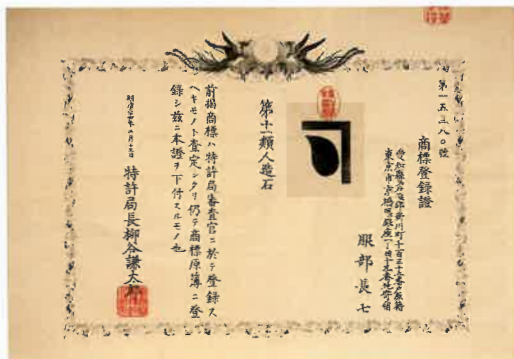 第一五三八〇號
商標登録證
愛知縣
東京市京橋區銀座
服部長七
第十一類人造石
前掲商標ハ特許局審査官ニ於テ登録ス
ヘキモノト査定シタリ仍テ商標原簿ニ登
録シ茲ニ本證ヲ下付スルモノ也
明治
特許局長柳谷謙太郎